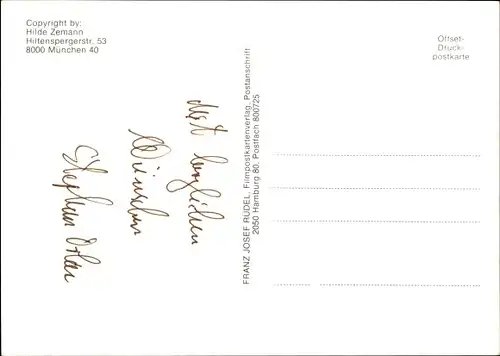 Copyright by:
Hilde Zemann
Hiltenspergerstr. 53
8000 München 40
Offset-
Druck-
postkarte
FRANZ JOSEF RÜDEL, Filmpostkartenverlag, Postanschrift
2050 Hamburg 80. Postfach 800725
Mit herzlichen
Wünschen
Stephan Orlac